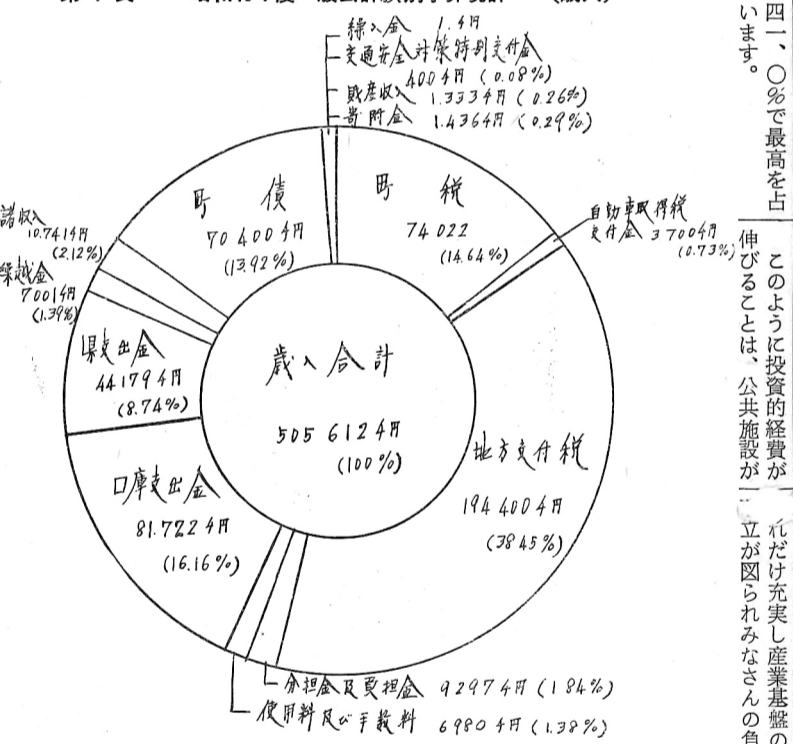 繰入金 1.4円
交通安全対策特別交付金
400千円 (0.08%)
財産収入 1.333千円 (0.26%)
寄附金 1.436千円 (0.29%)
町税
74022
(14.64%)
自動車取得税
交付金 3700千円
(0.73%)
地方交付税
194400千円
(38.45%)
分担金及負担金 9297千円 (1.84%)
使用料及び手数料 6980千円 (1.38%)
口庫支出金
81.722千円
(16.16%)
県支出金
44179千円
(8.74%)
繰越金
7001千円
(1.39%)
諸収入
10.741千円
(2.12%)
町債
70400千円
(13.92%)
歳入合計
505612千円
(100%)
四一、〇%で最高を占
います。
このように投資的経費が
伸びることは、公共施設が
れだけ充実し産業基盤の
立が図られみなさんの負